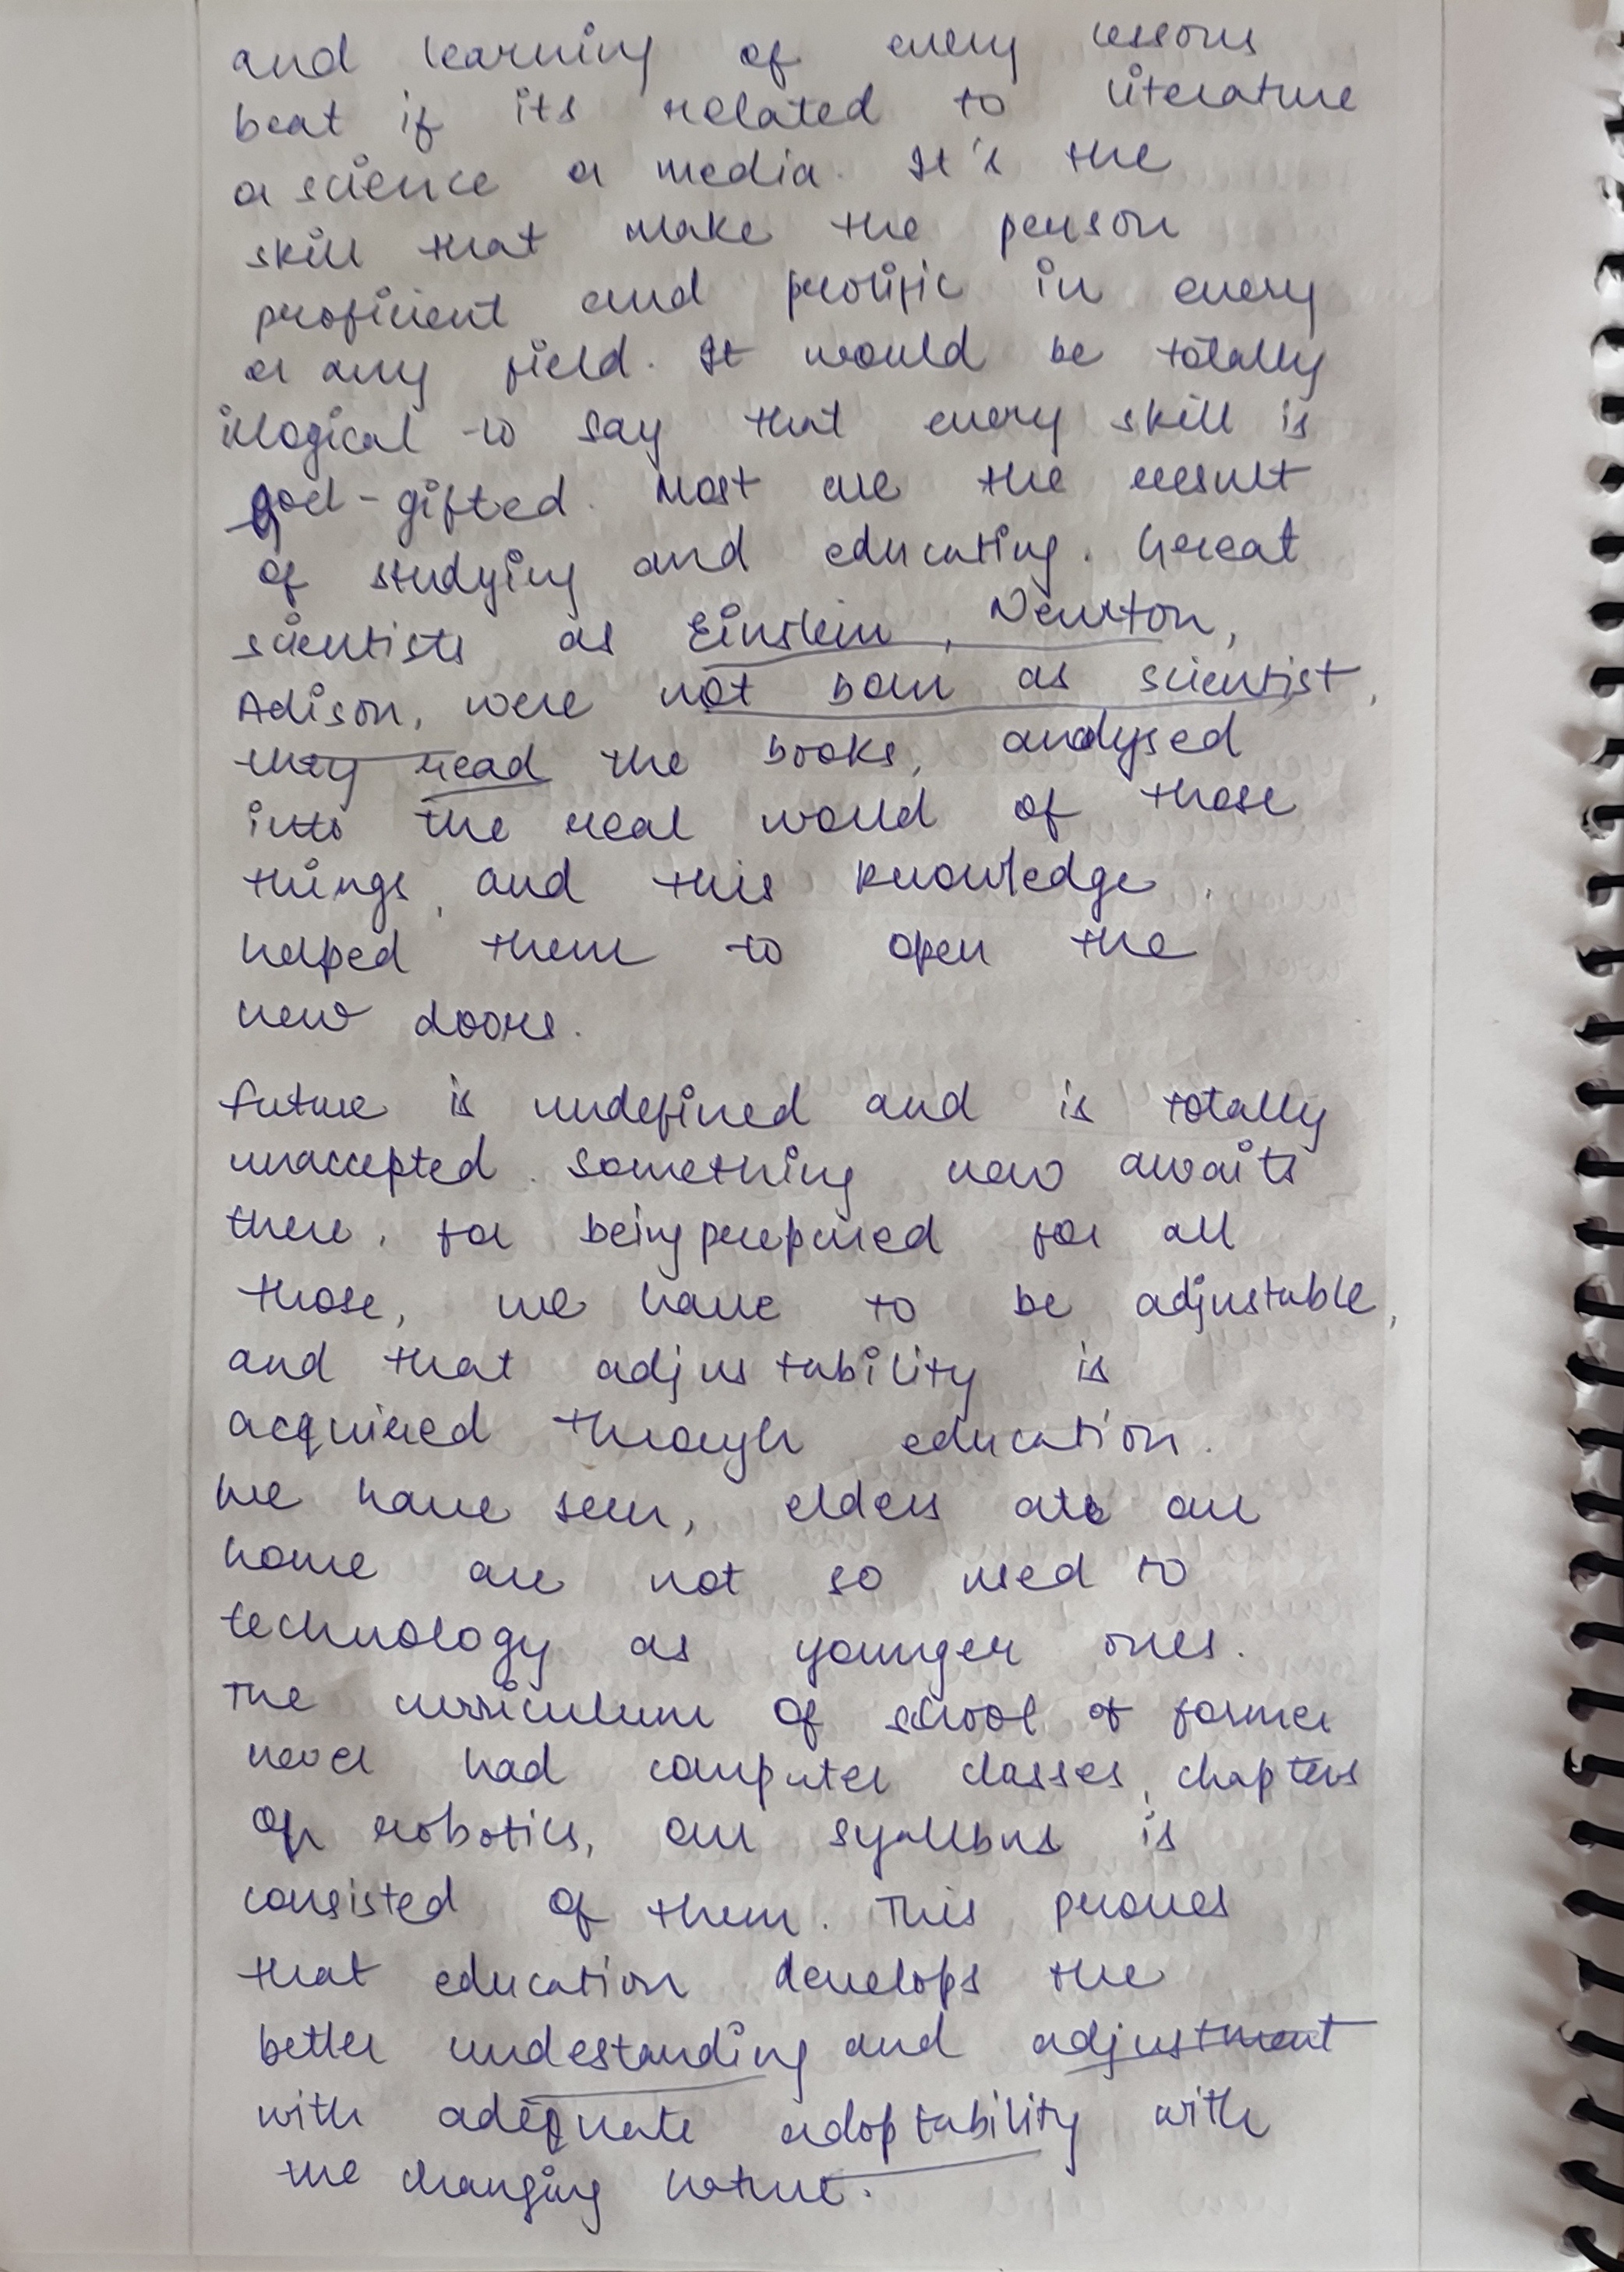 and learning of every lessons
beat if its related to literature
or science or media. It's the
skill that make the person
proficient and prolific in every
or any field. It would be totally
illogical to say that every skill is
god-gifted. Most are the result
of studying and educating. Great
scientists as Einstein, Newton,
Adison, were not born as scientist,
they read the books, analysed
into the real world of those
things, and this knowledge
helped them to open the
new doors.
future is undefined and is totally
unaccepted. Something new awaits
there. For being prepared for all
those, we have to be adjustable,
and that adjustability is
acquired through education.
We have seen, elders at our
home are not so used to
technology as younger ones.
The curriculum of school of former
never had computer classes, chapters
of robotics, our syallbus is
consisted of them. This proves
that education develops the
better undestanding and adjustment
with adequate adoptability with
the changing nature.